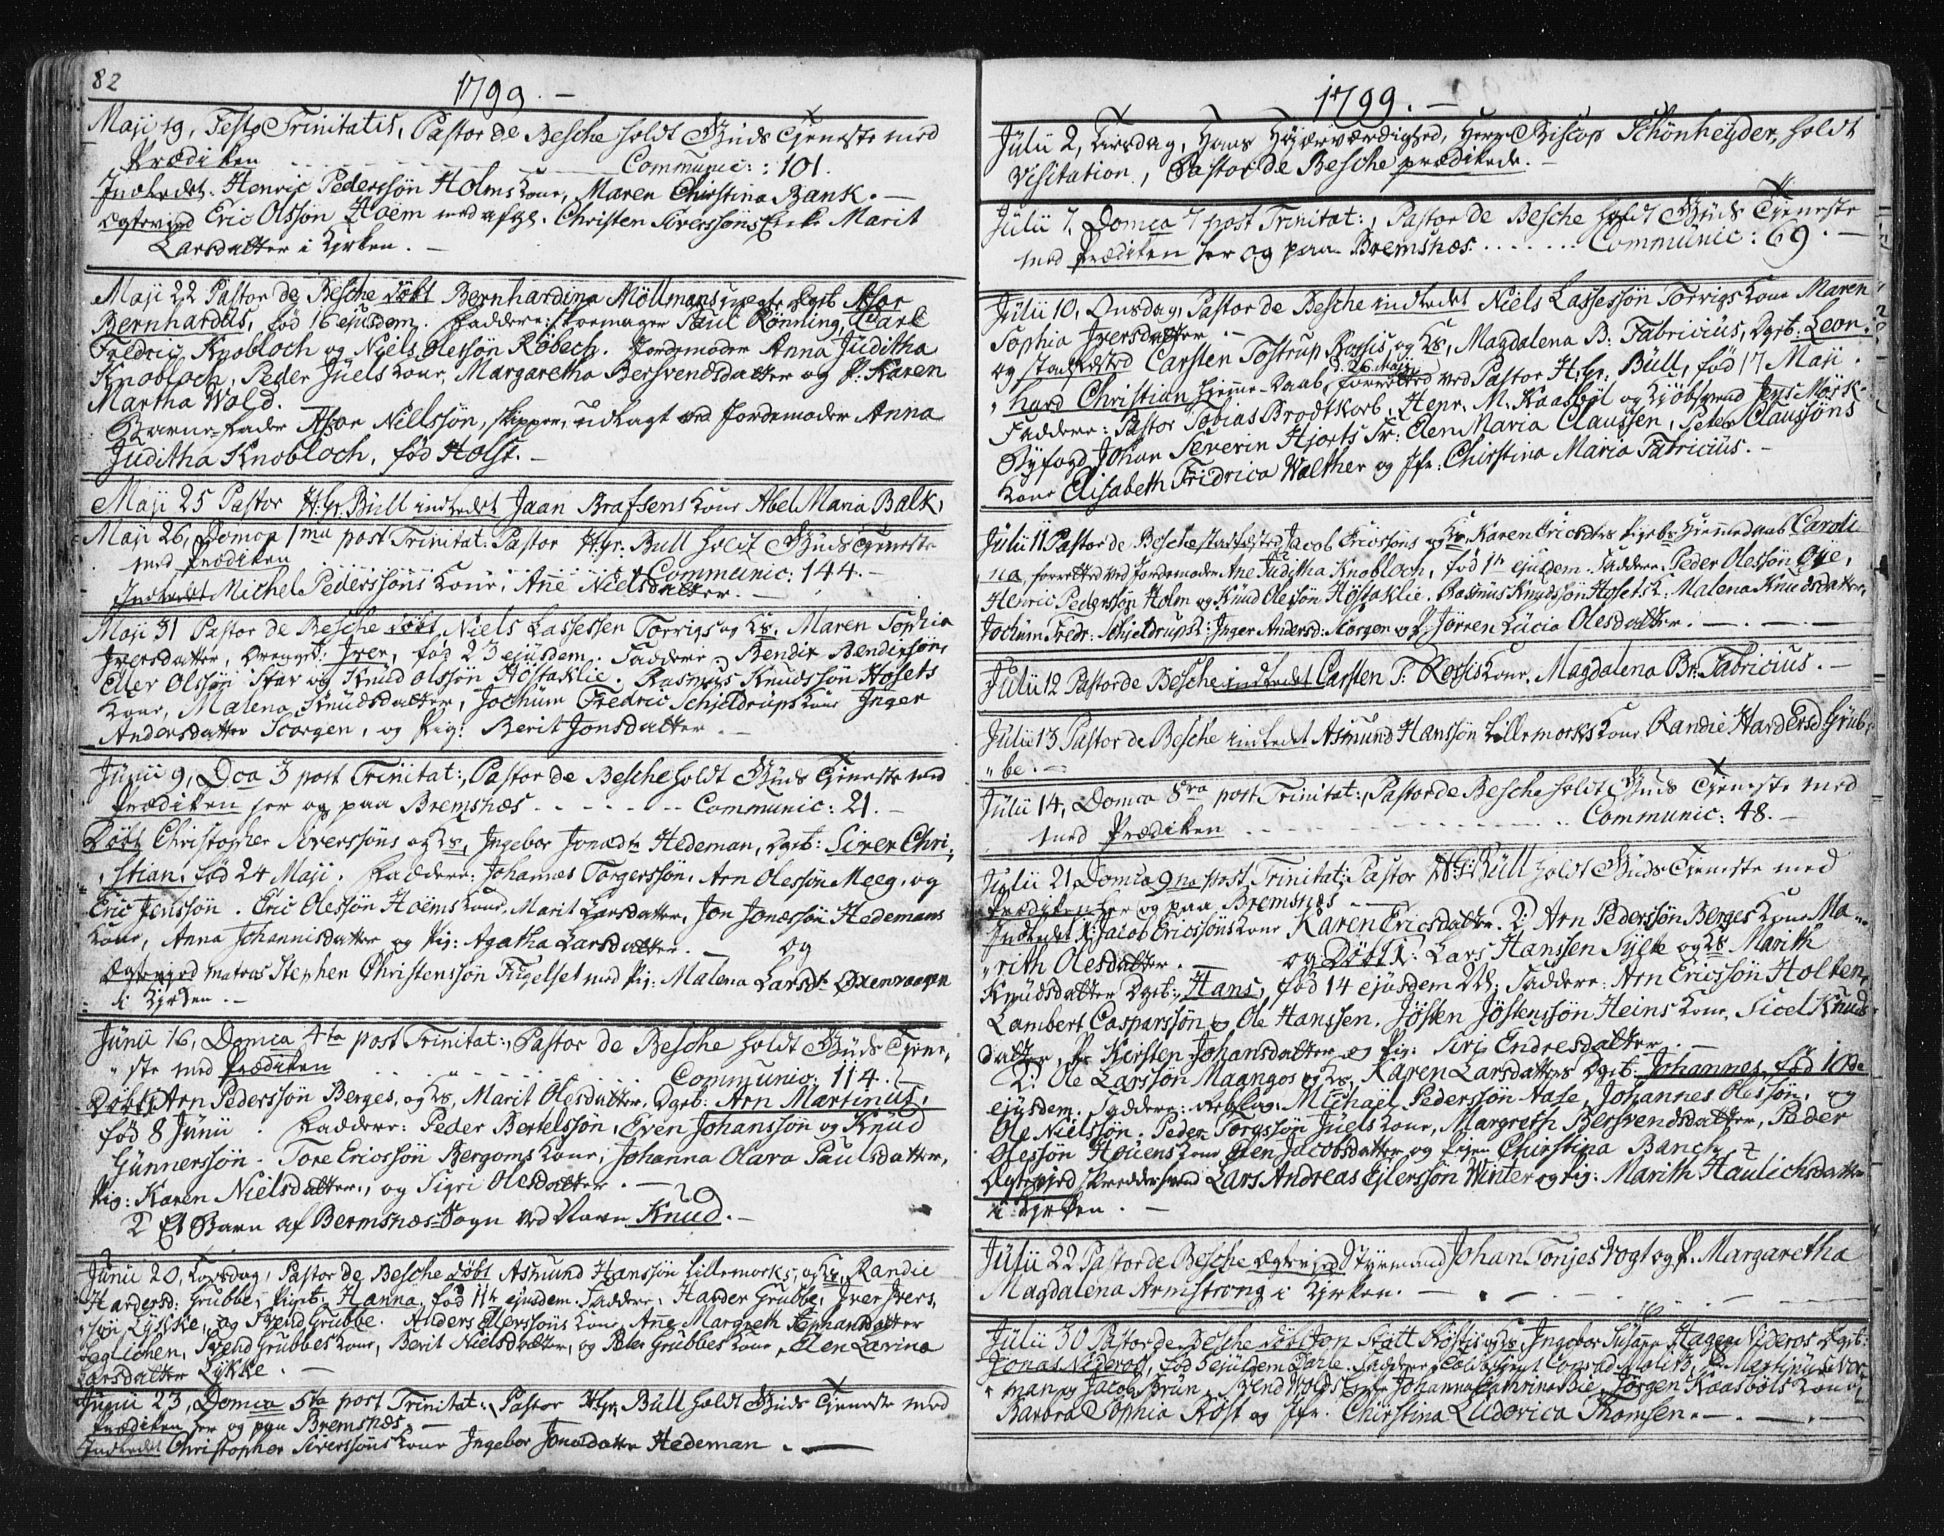 82
1799. —
Maji 19, Festo Trinitatis, Pastor de Besche holdt Guds Tjeneste med
Prædiken . . . . . . Communic: : 101.
Indledet. Henric Pederssön Holms Kone, Maren Christina Bank. —
Egteviед Eric Olssön Hoëm med afg. Christen Siverssöns Enke Marit
Larsdatter i Kirken. —
Maji 22 Pastor de Besche döbt Bernhardina Möllmans uægte Dgb Asor
Bernhardus, föd 16 ejusdem. Faddere: Skoemager Paul Rönning, Carl
Fredric Knobloch og Niels Olessön Röbech. Jordemoder Anna Juditha
Knobloch, Peder Juels Kone, Margaretha Bersvendsdatter og P. Karen
Martha Wold.
Barne-Fader Asor Nielssön, Skipper, udlagt ved Jordemoder Anna
Juditha Knobloch, föd Holst. —
Maji 25 Pastor H: Gr. Bull indledet Jaan Brafsens Kone Abel Maria Balk,
Maji 26, Domca 1ma post Trinitat: Pastor H: gr: Bull holdt Guds Tjeneste
med Prædiken . . . . . Communic: 144. —
Indledet Michel Pederssöns Kone, Ane Nielsdatter. —
Maji 31 Pastor de Besche döbt Niels Lassessen Torvigs og Hs. Maren Sophia
Iversdatter, Drenget: Iver, föd 23 ejusdem. Faddere: Bendix Bendixsön,
Eller Olssön Star og Knud Olssön Höstaklie. Rasmus Knudssön Hosets
Kone, Malena Knudsdatter, Jochum Fredric Schjeldrups Kone Inger
Andersdatter Scorgen, og Pig: Berit Jonsdatter. —
Junii 9, Dca 3 post Trinitat:, Pastor de Besche holdt Guds Tjeneste med
Prædiken her og paa Bremsnæs . . . . . Communic: 21. —
Döbt Christopher Siverssöns og Hs, Ingebor Jonsdt Hedeman, Dgeb: Siver Chri-
stian, föd 24 Maji. Faddere: Johannes Torgerssön, Arn Olessön Meeg, og
Eric Joenssön. Eric Olessön Hoëms Kone, Marit Larsdatter, Jon Jonæssön Hedemans
Kone, Anna Johannisdatter og Pig: Agatha Larsdatter. — og
Egteviед Matros Stephen Christenssön Fugelset med Pig: Malena Larsdt Oxenvaagen
i Kirken. —
Junii 16, Domca 4ta post Trinitat:, Pastor de Besche holdt Guds Tjene-
ste med Prædiken . . . . . Communic. 114. —
Döbt 1) Arn Pederssön Berges, og Hs. Marit Olesdatter, Dgeb: Arn Martinus,
föd 8 Junii. Faddere: Peder Bertelssön, Even Johanssön og Knud
Gunnerssön. Tore Ericssön Bergems Kone, Johanna Olara Paulsdatter,
Pig: Karen Nielsdatter, og Sigri Olesdatter. —
2 Et Barn af Bremsnæs-Sogn ved Navn Knud. —
Junii 20, Torsdag, Pastor de Besche döbt Asmund Hanssön Lillemorks, og Hs, Randie
Hardersd: Grubbe, Pigeb: Hanna, föd 11te ejusdem. Faddere: Harder Grubbe, Iver Ivers-
sön Lykke, og Svend Grubbe. Anders Elerssöns Kone, Ane Margreth Stephansdatter
Leglichen, Svend Grubbes Kone, Berit Nielsdatter, og Peder Grubbes Kone, Elen Larina
Larsdatter Lykke. —
Junii 23, Domca 5ta post Trinitat:, Pastor H: Gr. Bull holdt Guds Tjeneste med
Prædiken her og paa Bremsnæs. —
Indledet Christopher Siverssöns Kone Ingebor Jonædatter Hedeman. —
1799. —
Julii 2, Tirsdag, Hans Höjærværdighed, Herr Biscop Schönheyder, holdt
Visitation, Pastor de Besche prædikede. —
Julii 7, Domca 7 post Trinitat:, Pastor de Besche holdt Guds Tjeneste
med Prædiken her og paa Bremsnæs. . . . . . Communic: 69. —
Julii 10, Onsdag, Pastor de Besche indledet Niels Lassessön Torvigs Kone Maren
Sophia Iversdatter. —
og stadfæsted Carsten Tostrup Rossis, og Hs, Magdalena B: Fabricius, Dgeb: Leon-
hard Christian Hjemme-Daab, d: 26 Maji forretted ved Pastor H: Gr: Bull, föd 17 Maji.
Faddere: Pastor Tobias Brodtkorb, Henr. M. Kaasböl og Kjöbsvend Jens Mörk.
Byfogd Johan Severin Hjorts Fr: Elen Maria Claussen, Peter Claussöns
Kone Elisabeth Fridrica Walther og Jfr: Christina Maria Fabricius. —
Julii 11 Pastor de Besche stadfæsted Jacob Ericssöns og Hs. Karen Ericsdters Pigebs Hjemmedaab Caroli-
na, forretted ved Jordemoder Ane Juditha Knobloch, föd 1te ejusdem. Faddere: Peder Olessön Oye,
Henric Pederssön Holm og Knud Olessön Höstaklie. Rasmus Knudssön Hosets K: Malena Knudsdatter,
Jochum Fredr: Schjeldrups K: Inger Andersd: Scorgen og P. Jörren Lucia Olesdatter. —
Julii 12 Pastor de Besche indledet Carsten T: Rossis Kone, Magdalena Br: Fabricius. —
Julii 13 Pastor de Besche indledet Asmund Hanssön Lillemorks Kone Randie Hardersd Grub-
be. —
Julii 14, Domca 8va post Trinitat:, Pastor de Besche holdt Guds Tjeneste med
med Prædiken . . . . . Communic: 48. —
Julii 21 Domca 9na post Trinitat: Pastor H: G: Bull holdt Guds Tjeneste med
Prædiken her og paa Bremsnæs —
Indledet 1: Jacob Ericssöns Kone Karen Ericsdatter. 2: Arn Pederssön Berges Kone Ma-
rith Olesdatter. — og Döbt 1: Lars Hanssen Syek og Hs. Marith
Knudsdatter Dgeb: Hans, föd 14 ejusdem. Faddere: Arn Ericssön Holten,
Lambert Casparssön og Ole Hanssen, Jösten Jöstenssön Heins Kone, Sicel Knuds-
datter, P. Kirsten Johansdatter og Pig: Siri Endresdatter. —
2: Ole Larssön Maangos og Hs, Karen Larsdatters Dgeb: Johannes, föd 10de
ejusdem. Faddere: Michael Pederssön Aase, Johannes Olessön, og
Ole Nielssön. Peder Torgssön Juels Kone, Margreth Bersvendsdatter, Peder
Olessön Houens Kone Elen Jacobsdatter og Pigen Christina Banch. —
Egteviед Skreddersvend Lars Andreas Ejlerssön Winter og Pig: Marith Haulichsdatter
i Kirken. —
Julii 22 Pastor de Besche Egteviед Styrmand Johan Tonjes Vogt og P. Margaretha
Magdalena Armstrong i Kirken. —
Julii 30 Pastor de Besche döbt Jon Stött Röstis og Hs, Ingebor Susanna Hagen Nideros Dgeb:
Jonas Nideros, föd 5 ejusdem Carle. Faddere: Conrad Moltz, Martinus Nor-
man og Jacob Brun. Svend Wolds Enke Johanna Cathrina Bie, Jörgen Kaasböls Kone,
Barbra Sophia Röst og Jfr. Christina Ludovica Thomsen. —